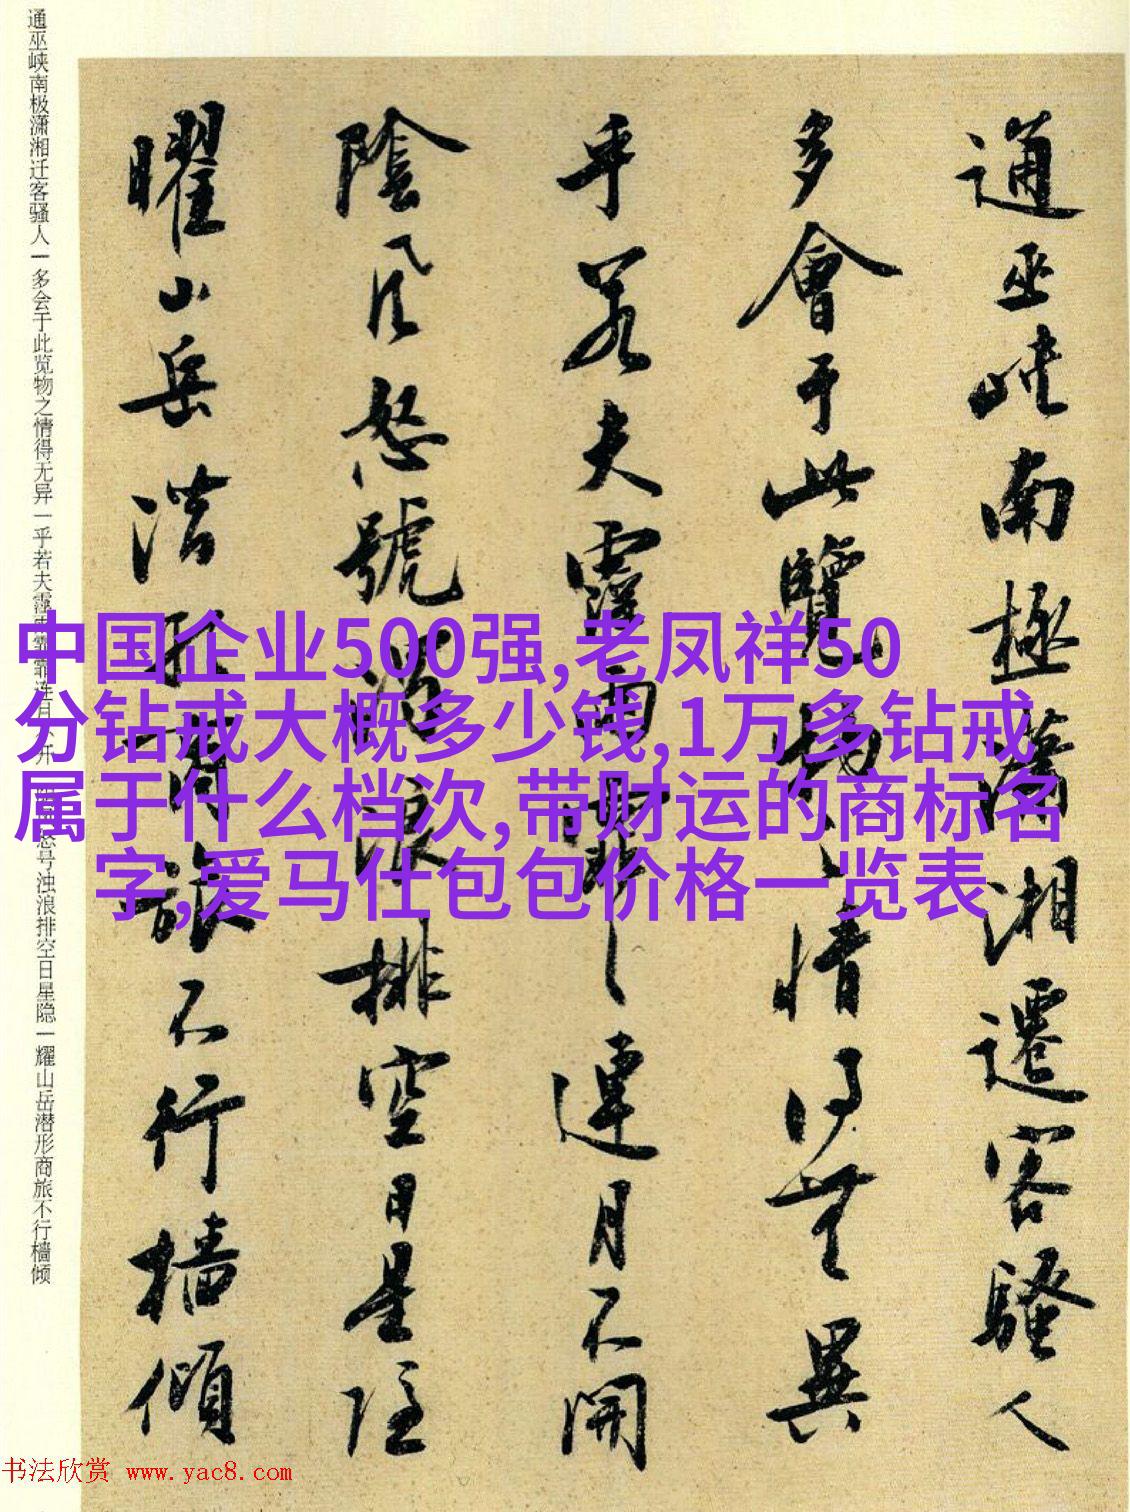 通巫峡南极潇湘迁客骚人
多會于此覽物之情得無異
乎若夫霪雨霏霏連月不開
陰風怒號濁浪排空日星隱
曜山岳潜形商旅不行檣傾
通巫峡南极潇湘迁客骚人一多会于此览物之情得无异一乎若夫霪雨霏霏连月不开一阴风怒号浊浪排空日星隐一耀山岳潜形商旅不行樯倾
中国企业500强,老凤祥50
分钻戒大概多少钱,1万多钻戒
属于什么档次,带财运的商标名
字,爱马仕包包价格一览表
书法欣赏 www.yac8.com